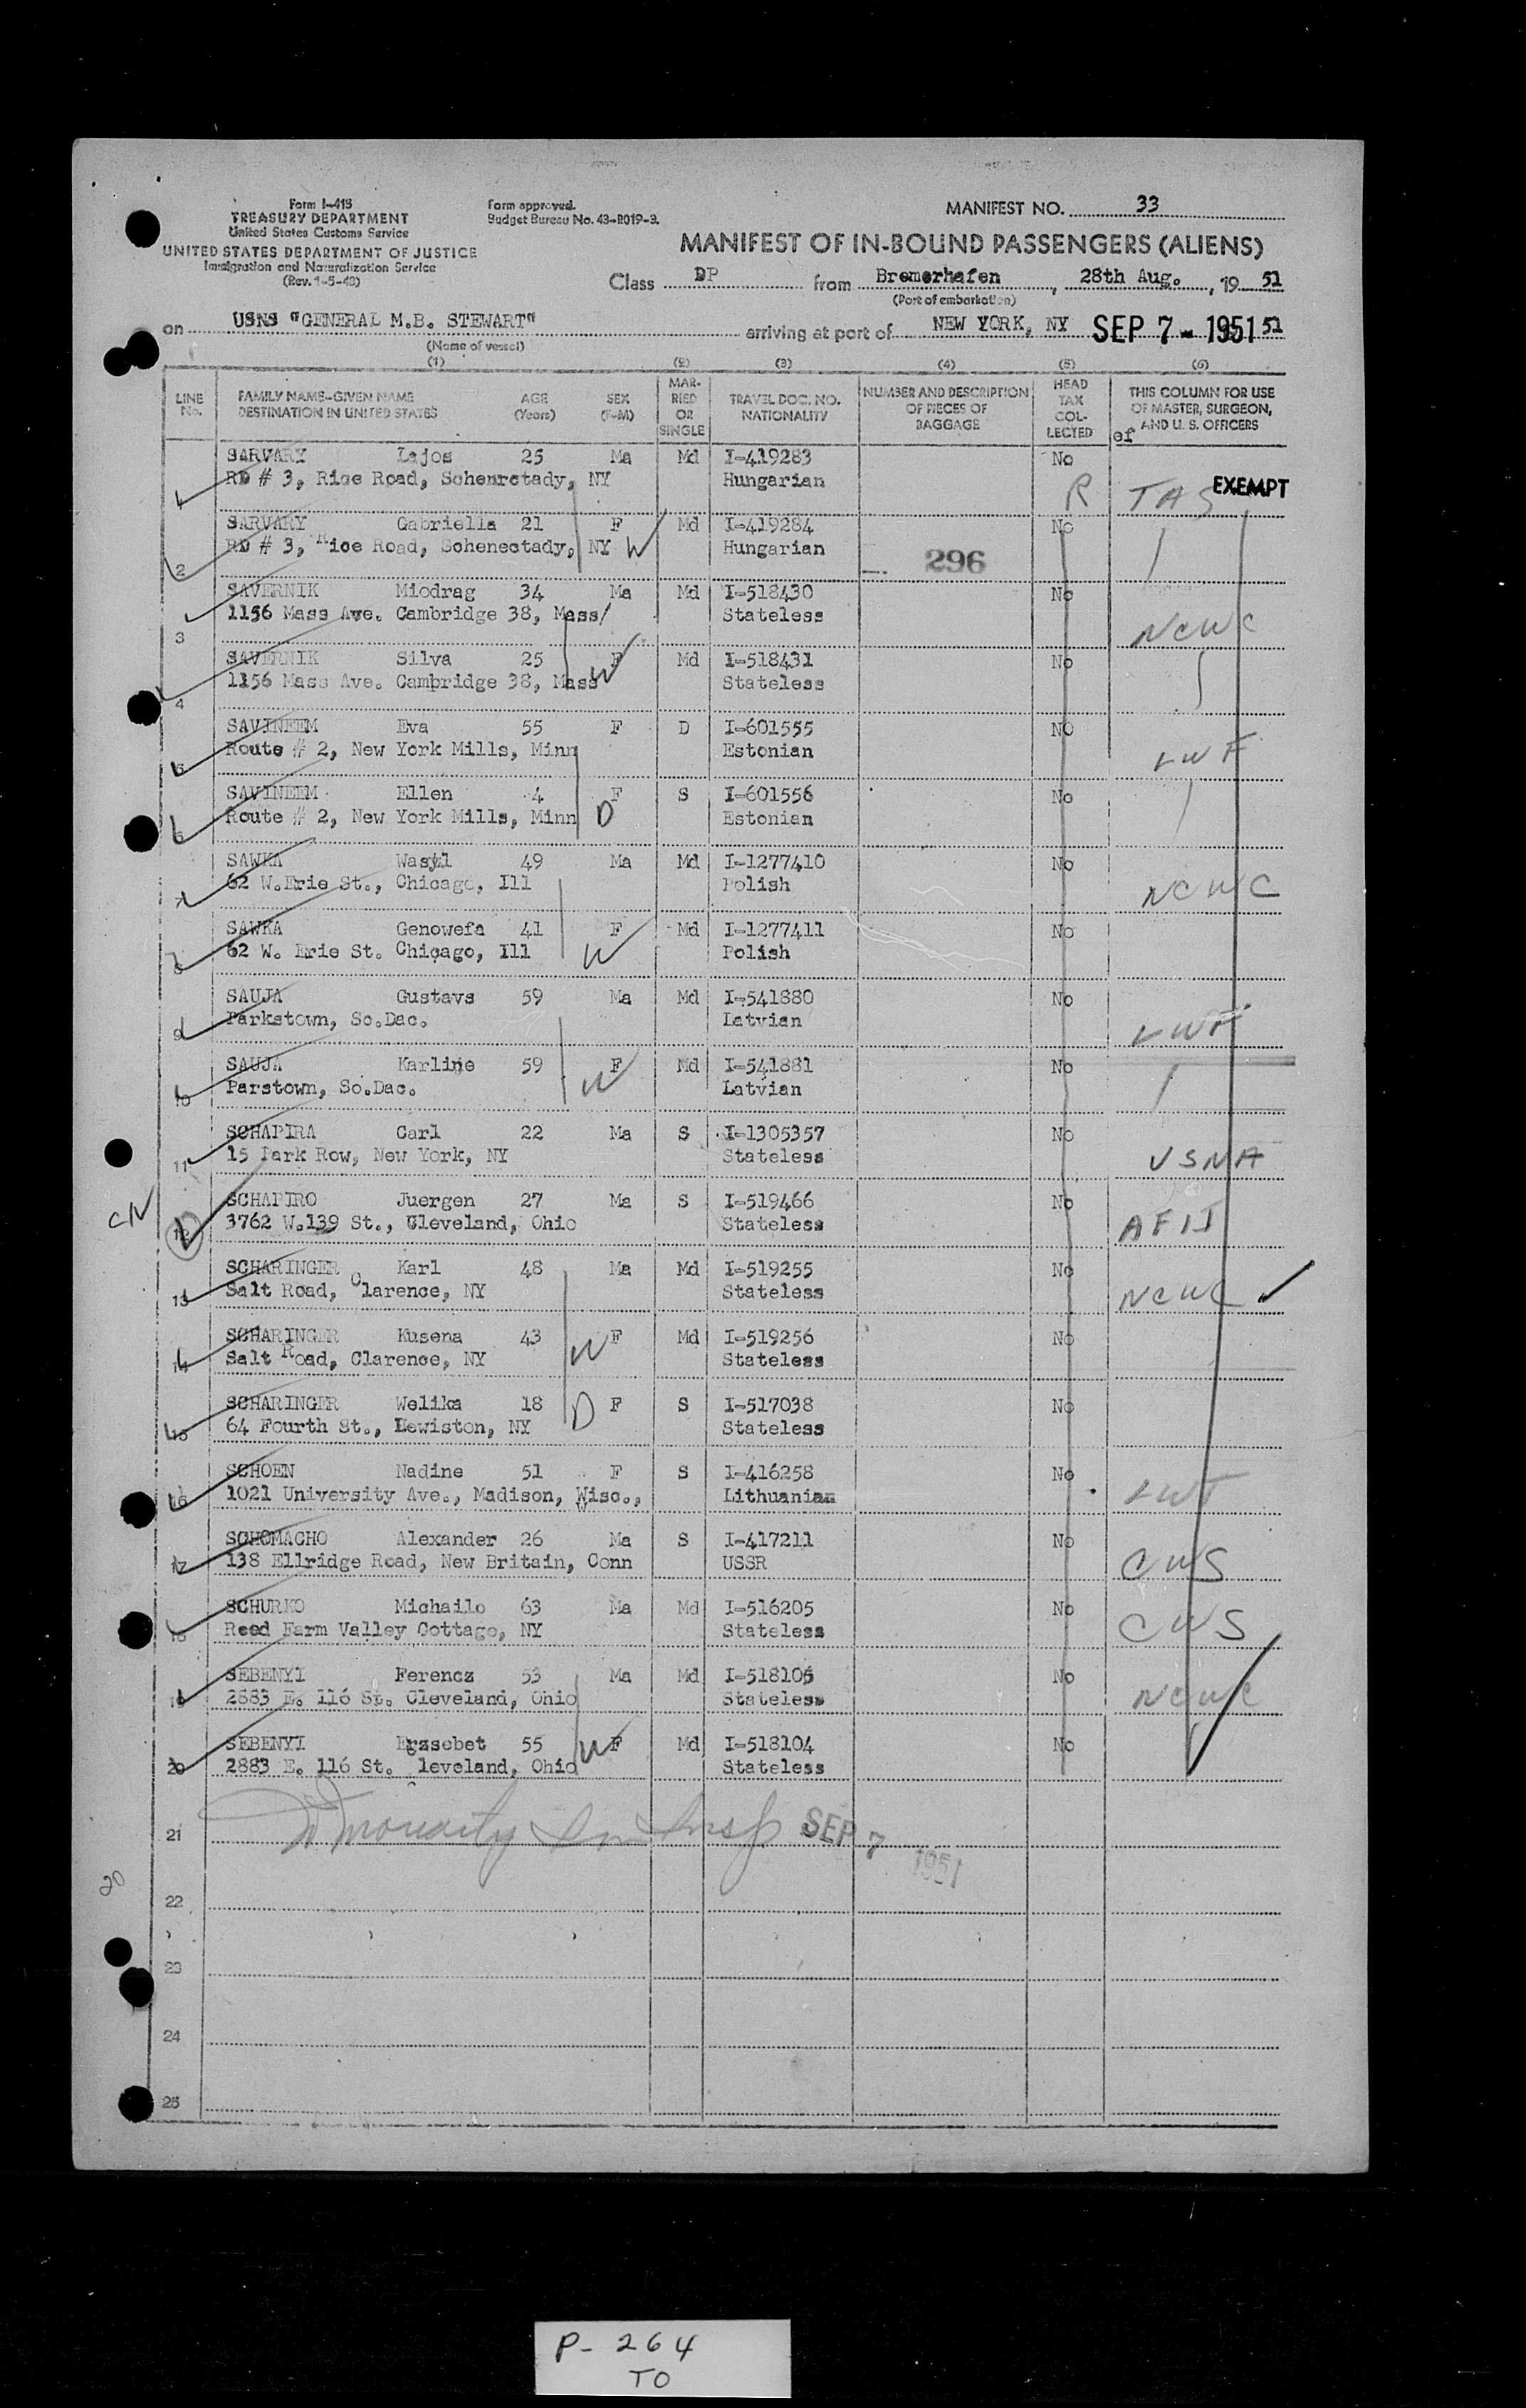 Form I-418
TREASURY DEPARTMENT
United States Customs Service
UNITED STATES DEPARTMENT OF JUSTICE
Immigration and Naturalization Service
(Rev. 1-5-48)
Form approved.
Budget Bureau No. 43-R019-3.
MANIFEST NO. 33
MANIFEST OF IN-BOUND PASSENGERS (ALIENS)
Class DP from Bremerhafen, 28th Aug., 19 51
(Port of embarkation)
on USNS "GENERAL M.B. STEWART" arriving at port of NEW YORK, NY SEP 7 - 1951 51
(Name of vessel)
(1) (2) (3) (4) (5) (6)
LINE No.
FAMILY NAME-GIVEN NAME
DESTINATION IN UNITED STATES
AGE (Years)
SEX (F-M)
MARRIED OR SINGLE
TRAVEL DOC. NO.
NATIONALITY
NUMBER AND DESCRIPTION OF PIECES OF BAGGAGE
HEAD TAX COLLECTED
THIS COLUMN FOR USE OF MASTER, SURGEON, AND U. S. OFFICERS
ef
SARVARY Lajos 25 Ma Md I-419283 No
1 RD # 3, Rice Road, Schenrctady, NY Hungarian R TAS EXEMPT
SARVARY Gabriella 21 F Md I-419284 No
RD # 3, Rice Road, Schenectady, NY W Hungarian 296
2
SAVERNIK Miodrag 34 Ma Md I-518430 No
1156 Mass Ave. Cambridge 38, Mass/ Stateless
3 NCWC
SAVERNIK Silva 25 F Md I-518431 No
1156 Mass Ave. Cambridge 38, Mass W Stateless
4
SAVINEEM Eva 55 F D I-601555 NO
5 Route # 2, New York Mills, Minn Estonian LWF
SAVINEEM Ellen 4 F S I-601556 No
6 Route # 2, New York Mills, Minn D Estonian
SAWKA Wasyl 49 Ma Md I-1277410 No
7 62 W.Erie St., Chicago, Ill Polish NCWC
SAWKA Genowefa 41 F Md I-1277411 No
8 62 W. Erie St. Chicago, Ill W Polish
SAUJA Gustavs 59 Ma Md I-541880 No
9 Parkstown, So.Dac. Latvian LWF
SAUJA Karline 59 F Md I-541881 No
10 Parstown, So.Dac. W Latvian
SCHAPIRA Carl 22 Ma S I-1305357 No
11 15 Park Row, New York, NY Stateless USNA
SCHAPIRO Juergen 27 Ma S I-519466 No
12 3762 W.139 St., Cleveland, Ohio Stateless AFIJ
SCHARINGER Karl 48 Ma Md I-519255 No
13 Salt Road, Clarence, NY Stateless NCWC
SCHARINGER Kusena 43 W F Md I-519256 No
14 Salt Road, Clarence, NY Stateless
SCHARINGER Welika 18 D F S I-517038 No
15 64 Fourth St., Lewiston, NY Stateless
SCHOEN Nadine 51 F S I-416258 No
16 1021 University Ave., Madison, Wisc., Lithuanian LWF
SCHOMACHO Alexander 26 Ma S I-417211 No
17 138 Ellridge Road, New Britain, Conn USSR CWS
SCHURKO Michailo 63 Ma Md I-516205 No
18 Reed Farm Valley Cottage, NY Stateless CWS
SEBENYI Ferencz 53 Ma Md I-518105 No
19 2883 E. 116 St. Cleveland, Ohio Stateless NCWC
SEBENYI Erzsebet 55 W F Md I-518104 No
20 2883 E. 116 St. Cleveland, Ohio Stateless
21 SEP 7 1951
20
22
23
24
25
P- 264
TO